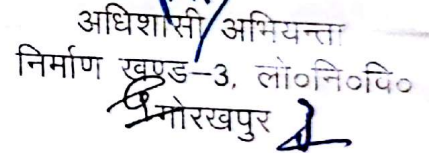 अधिशासी अभियन्ता
निर्माण खण्ड-3, लो०नि०वि०
गोरखपुर